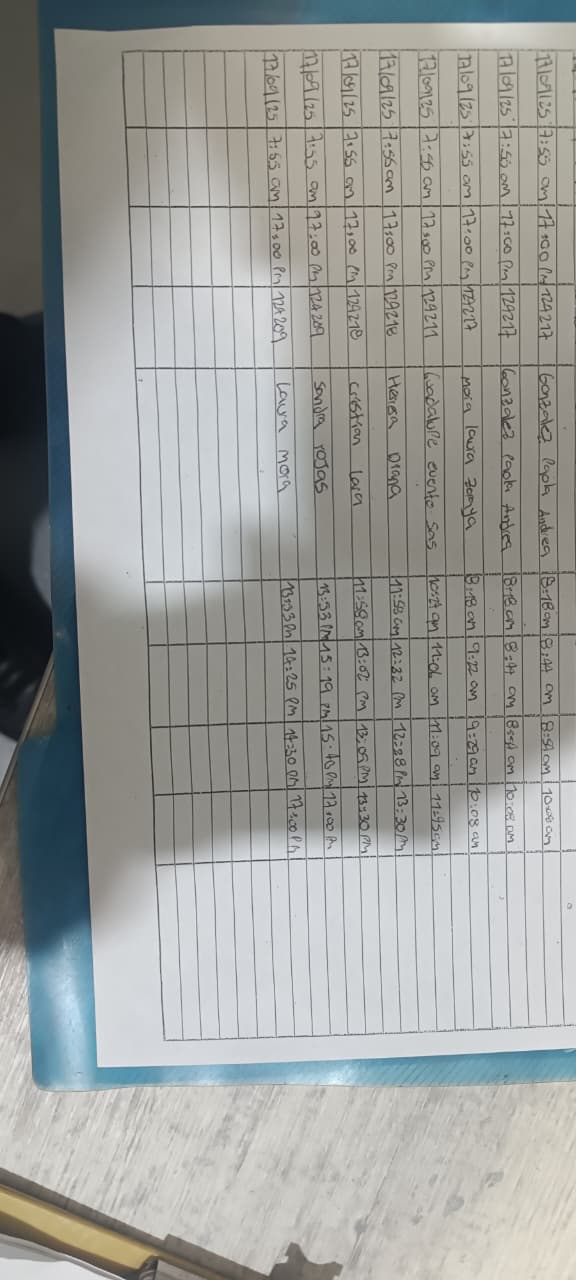 17/09/25 7:55 am 17:00 Pm 124217 Gonzalez Paola Andrea 8:18 am 8:44 am 8:54 am 10:08 am
17/09/25 7:55 am 17:00 Pm 124217 Gonzalez Paola Andrea 8:18 am 8:44 am 8:54 am 10:08 am
17/09/25 7:55 am 17:00 Pm 124217 Mora laura Zoraya 8:18 am 9:22 am 9:29 am 10:08 am
17/09/25 7:55 am 17:00 Pm 124211 Guadalupe evento Sas 10:29 am 11:06 am 11:09 am 11:45 am
17/09/25 7:55 am 17:00 Pm 124218 Diana 11:58 am 12:32 Pm 12:38 Pm 13:30 Pm
17/09/25 7:55 am 17:00 Pm 124218 Cristian Lara 11:58 am 13:02 Pm 13:09 Pm 13:30 Pm
17/09/25 7:55 am 17:00 Pm 124209 Sandra rojas 13:53 Pm 15:19 Pm 17:00 Pm
17/09/25 7:55 am 17:00 Pm 124209 Laura Mora 13:53 Pm 14:25 Pm 14:30 Pm 17:00 Pm